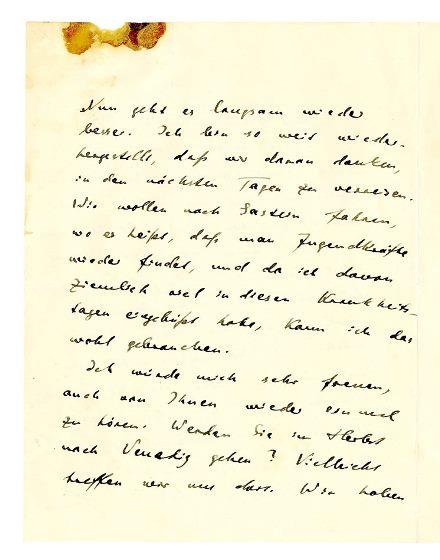 Nun geht es langsam wieder
besser. Ich bin so weit wieder-
hergestellt, daß wir daran denken,
in den nächsten Tagen zu verreisen.
Wir wollen nach Gastein fahren,
wo es heißt, daß man Jugendkräfte
wieder findet, und da ich davon
ziemlich viel in diesen Krankheits-
tagen eingebüßt habe, kann ich das
wohl gebrauchen.
Ich würde mich sehr freuen,
auch von Ihnen wieder einmal
zu hören. Werden Sie im Herbst
nach Venedig gehen? Vielleicht
treffen wir uns dort. Wir haben